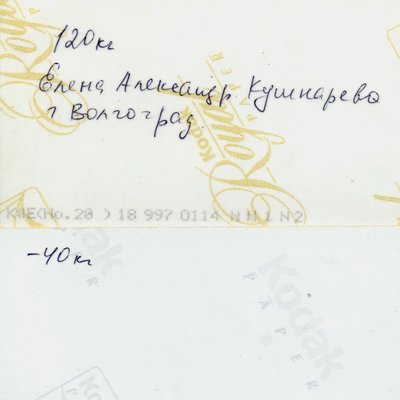 120кг
Елена Александр Кушнарева
г Волгоград.
Royal
Kodak
PAPER
KHE(No.20 ) 18 997 0114 N N 1 N 2
-40кг
Kodak
PAPER
Kodak
PAPER